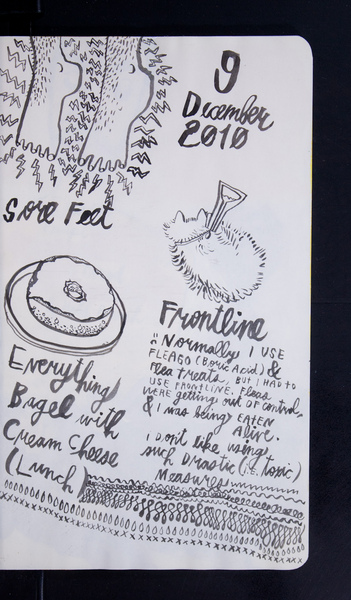 9
December
2010
Sore Feet
Frontline
Normally I USE
FLEAGO (Boric Acid) &
flea treats, BUT I HAD TO
USE FRONTLINE. Fleas
WERE getting out OF control,
& I was being EATEN
Alive.
I Don't like using
such Drastic (i.e. toxic)
Measures
Everything
Bagel with
Cream Cheese
(Lunch)